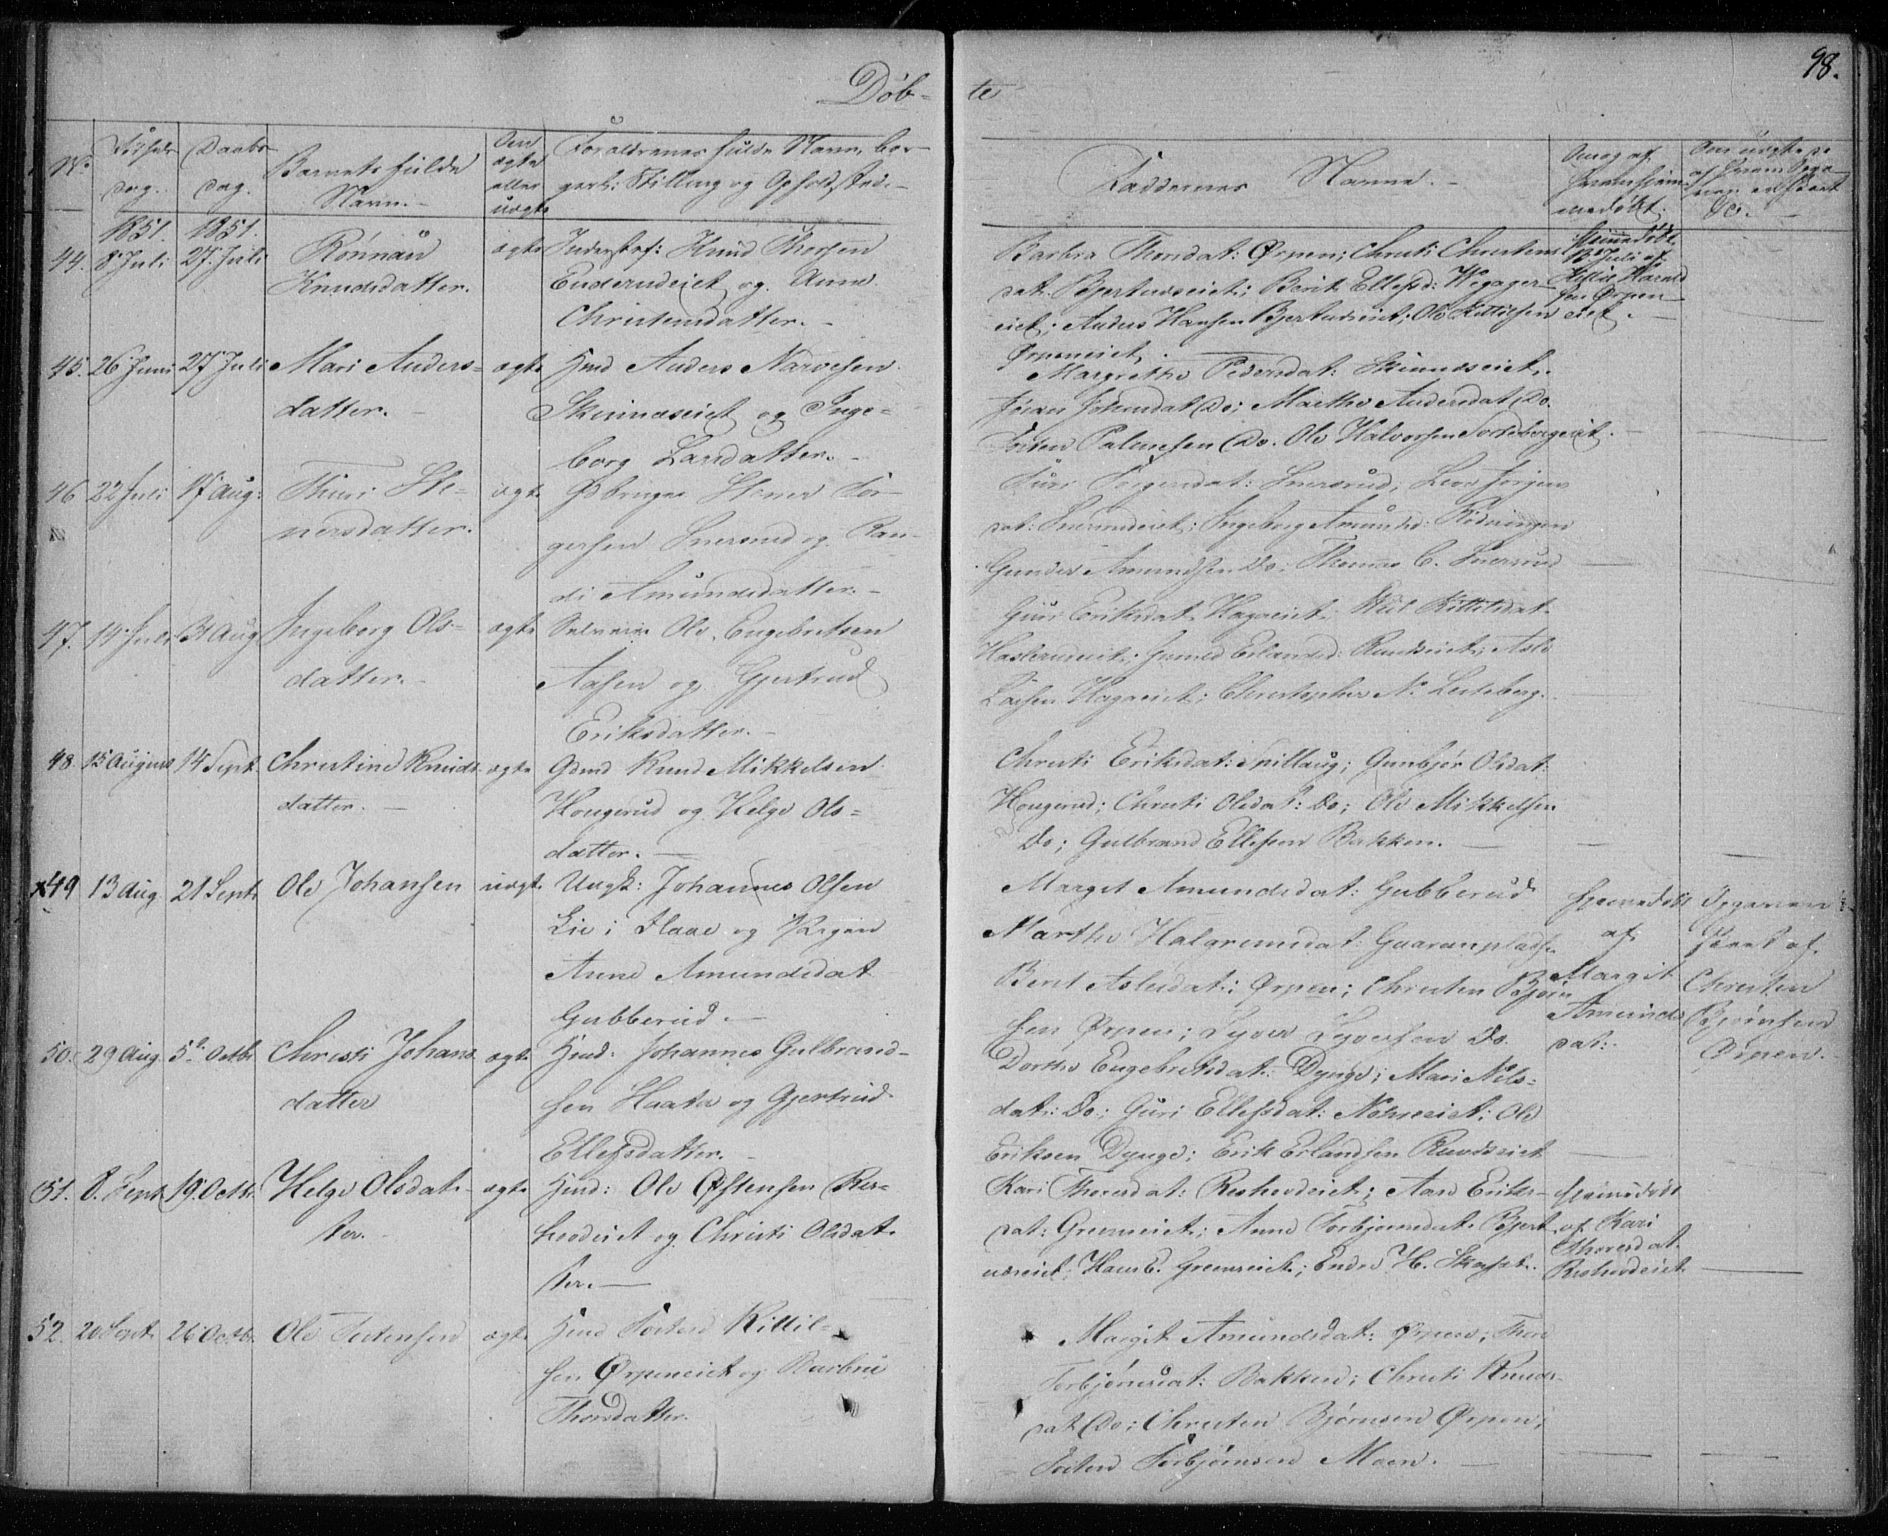 Døb-
te
98.
No.
Fødsels
dag.
Daabs
dag.
Barnets fulde
Navn.
Om
ægte
eller
uægte
Forældrenes fulde Navn, Bor-
gerl: Stilling og Opholdsted.
Faddernes Navne.
Om og af
hvem hjem-
medøbt.
1851. 1851.
44. 8 Juli 27 Juli
Rønnau
Knudsdatter.
ægte
Inderstef: Knud Thorsen
Enderudeiet og Anne
Christensdatter.
Barbra Thorsdat: Ørpen; Christi Christens
dat: Bjertnæseiet; Berit Ellefsd: Wegager-
eiet; Anders Hansen Bjertnæseiet; Ole Kittilsen
Ørpeneiet.
Hjemmedøbt
Juli af
Harald
sen Ørpen-
eiet.
45. 26 Juni 27 Juli
Mari Anders-
datter.
ægte
Hmd Anders Narvesen
Skinnæseiet og Inge-
borg Larsdatter.
Margrethe Pedersdat: Skinnæseiet.
Johnsdat Do; Marthe Andersdat Do.
Torsten Palmesen Do. Ole Halvorsen
46 22 Juli 17 Aug:
Thuri Ste-
nersdatter.
ægte
Gbruger Stener Tor-
gersen Snersrud og Ran-
di Amundsdatter.
Turi Torgersdat: Snersrud, Jørgens
dat: Snersrudeiet; Ingeborg Amundsd:
Gunder Amundsen Do; Thomas C. Snersrud
47. 14 Juli 31 Aug
Ingeborg Ols-
datter.
ægte
Selveier Ole Engebretsen
Aasen og Gjertrud
Eriksdatter.
Guri Eriksdat. Hagaeiet. Kittilsdat
Haslerudeiet; Gunild Erlandsd: Rundseiet; Asle
Larsen Hagaeiet; Christopher N. Lesteberg.
48. 15 August 14 Sept.
Christine Knuds-
datter.
ægte
Gdmd Knud Mikkelsen
Hougerud og Helge Ols-
datter.
Christi Eriksdat: Spillaug; Gunbjør Olsdat:
Hougerud; Christi Olsdat: Do; Ole Mikkelsen
Do; Gulbrand Ellefsen Bakken.
x49 13 Aug 21 Sept.
Ole Johansen
uægt.
Ungk: Johannes Olsen
Lie i Flaae og Pigen
Anne Amundsdat
Gubberud.
Margit Amundsdat: Gubberud
Marthe Halgrimsdat:
Berit Aslesdat: Ørpen; Christen Bjørn
sen Ørpen; Syver Syversen Do.
Hjemmedøbt
af
Margit
Amunds
dat:
Opgaven
af
Christen
Bjørnsen
Ørpen.
50. 29 Aug. 5te Octbr.
Christi Johans
datter
ægte
Hmd: Johannes Gulbrand-
sen Haata og Gjertrud
Ellefsdatter.
Dorthe Engebretsdat: Dynge; Mari Nils-
dat: Do; Guri Ellefsdat: Ole
Eriksen Dynge; Erik Erlandsen Rundseiet
51. 8. Sept. 19. Octbr.
Helge Olsdat-
ter.
ægte
Hmd: Ole Østensen Res-
hovdeiet og Christi Olsdat-
ter.
Kari Thoresdat: Reshovdeiet; Aase Eriks-
dat: Grenseiet; Anne Torbjørnsdat: Bjert-
næseiet; Hans C. Grenseiet; Endre H.
Hjemmedøbt
af Kari
Thoresdat
Reshovdeiet
52. 20 Sept. 26 Octbr.
Ole Torstensen
ægte
Hmd Torsten Kittil-
sen Ørpeneiet og Barbra
Thorsdatter.
Margit Amundsdat: Ørpen;
Torbjørnsdat: Bakken; Christi Knuds-
dat Do; Christen Bjørnsen Ørpen;
Torsten Torbjørnsen Moen.